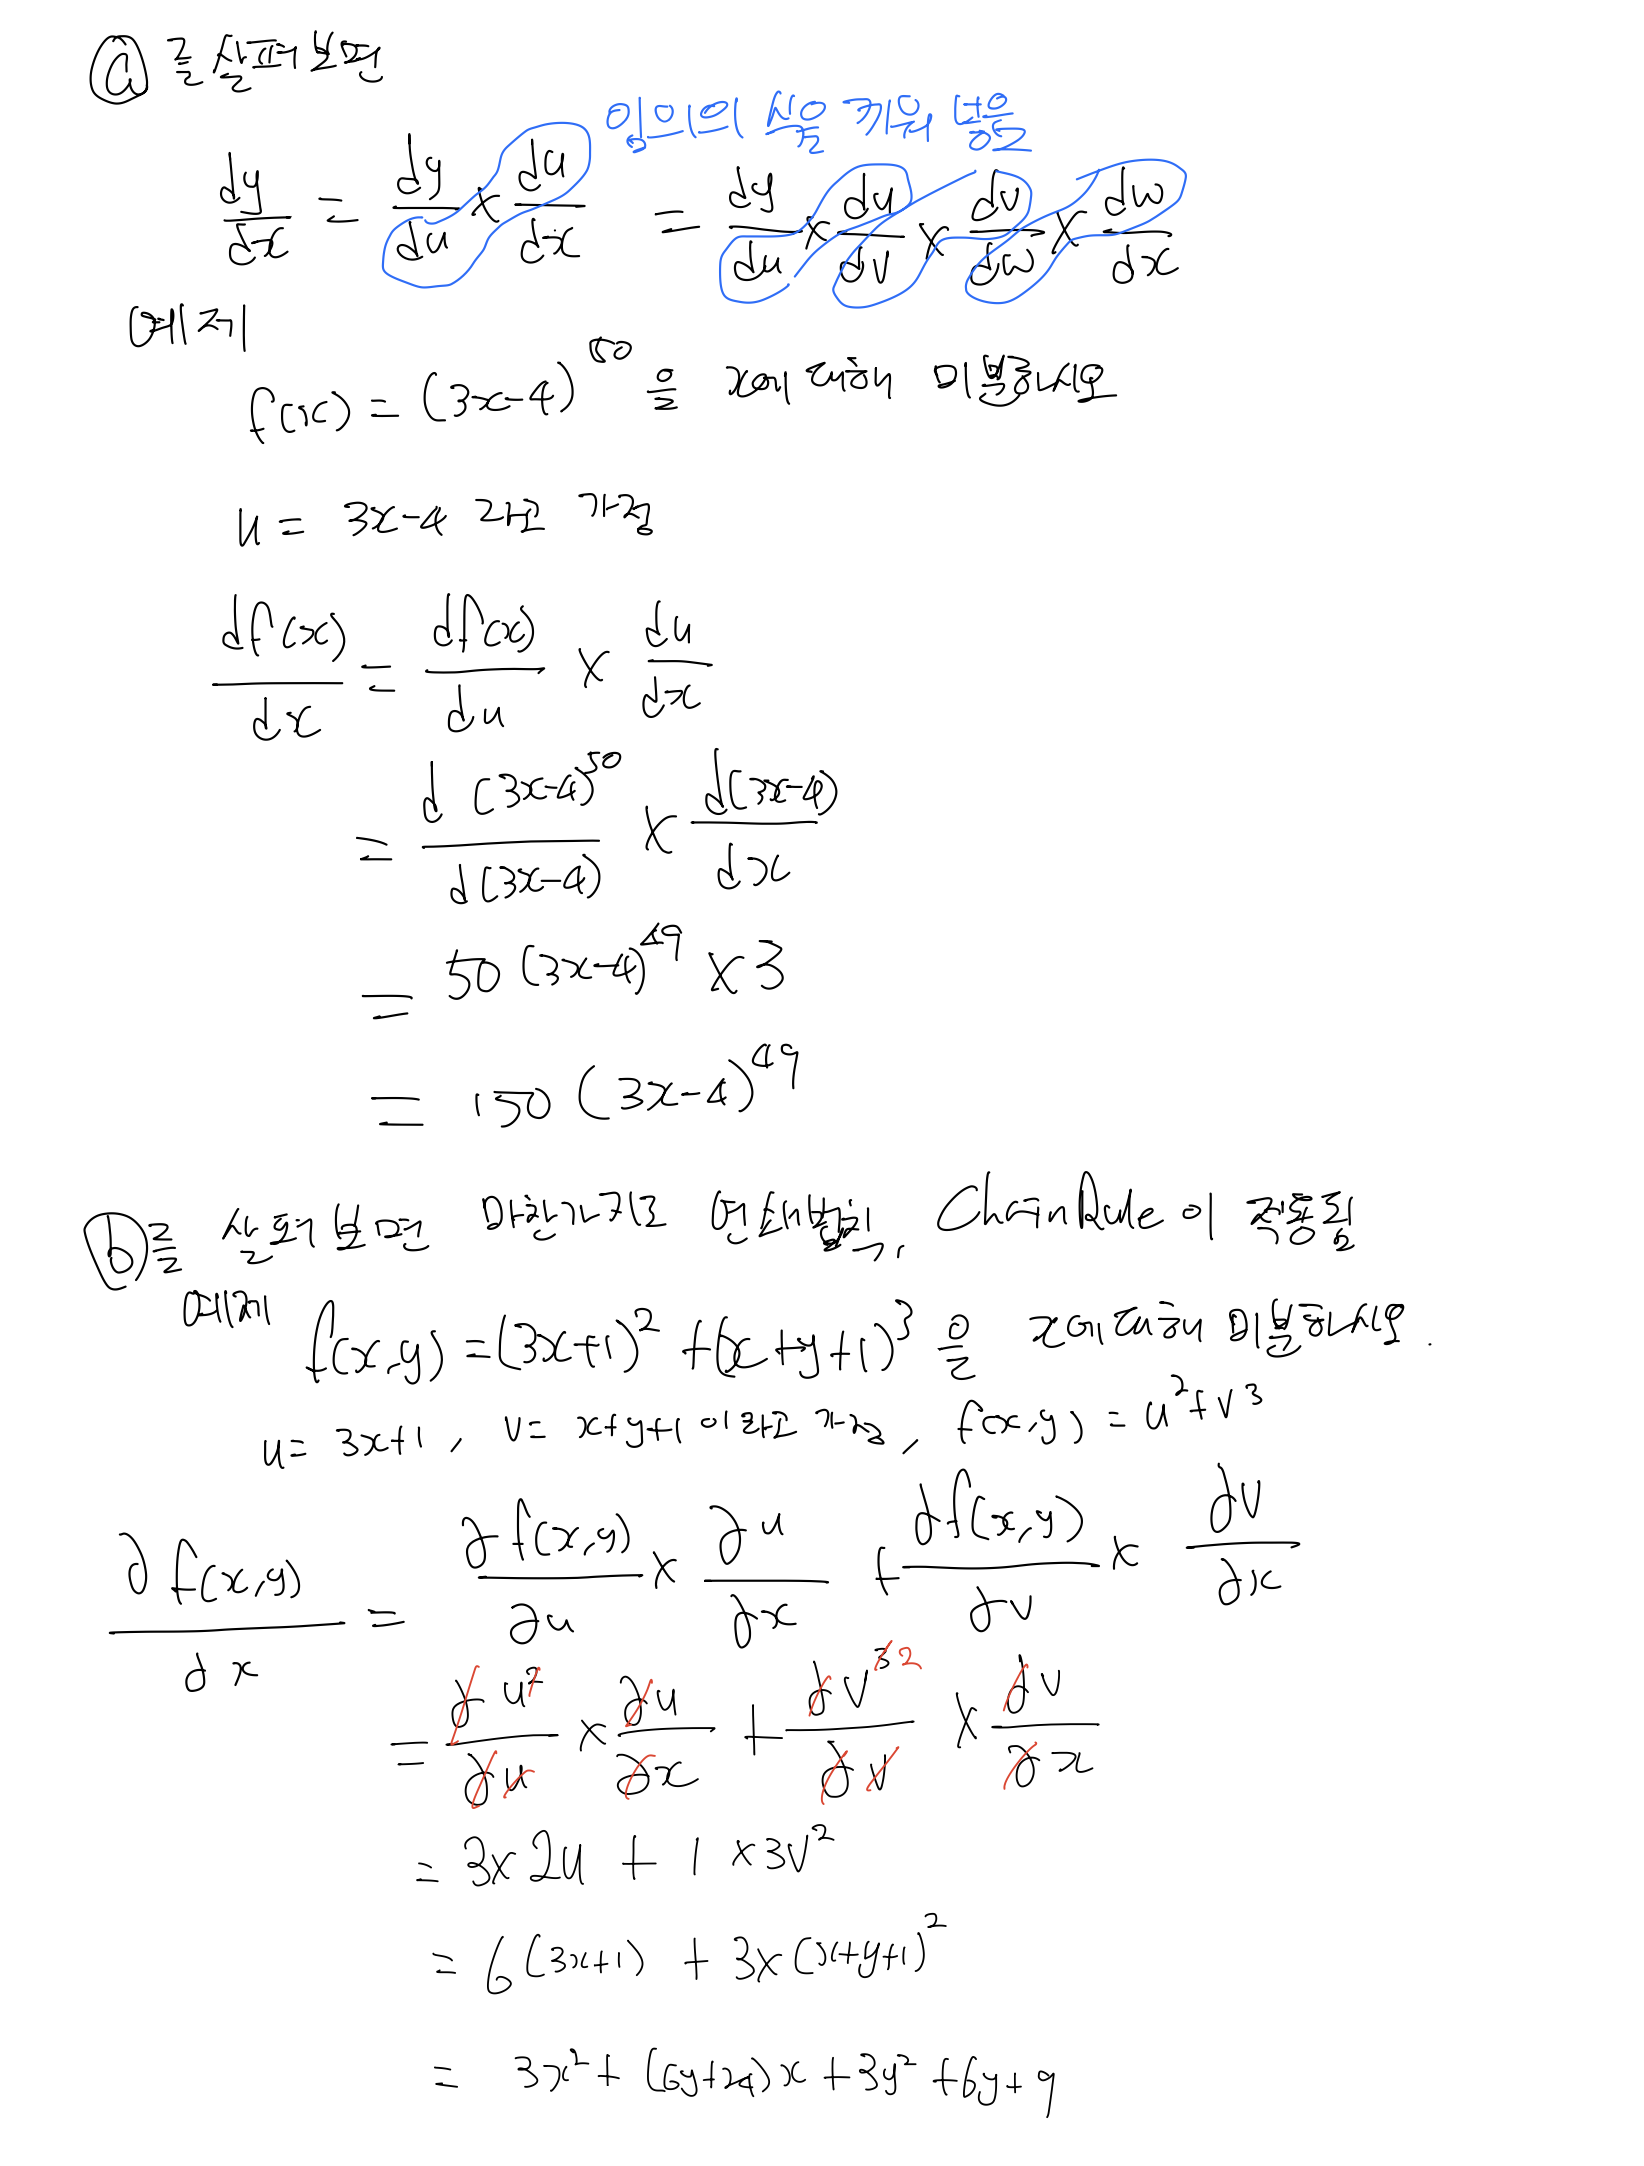 ⓐ를 살펴보면
임의의 식을 끼워 넣음
dy/dx = dy/du × du/dx = dy/du × du/dv × dv/dw × dw/dx
예제
f(x) = (3x-4)^50 을 x에 대해 미분하시오
u = 3x-4 라고 가정
df(x)/dx = df(x)/du × du/dx
= d(3x-4)^50/d(3x-4) × d(3x-4)/dx
= 50(3x-4)^49 × 3
= 150(3x-4)^49
ⓑ를 살펴보면 마찬가지로 연쇄법칙, ChainRule이 적용됨
예제 f(x,y) = (3x+1)^2 + (x+y+1)^3 을 x에 대해 미분하시오.
u = 3x+1, v = x+y+1 이라고 가정, f(x,y) = u^2+v^3
∂f(x,y)/∂x = ∂f(x,y)/∂u × ∂u/∂x + ∂f(x,y)/∂v × ∂v/∂x
= ∂u^2/∂u × ∂u/∂x + ∂v^3 2/∂v × ∂v/∂x
= 3×2u + 1×3v^2
= 6(3x+1) + 3×(x+y+1)^2
= 3x^2 + (6y+24)x + 3y^2 + 6y + 9